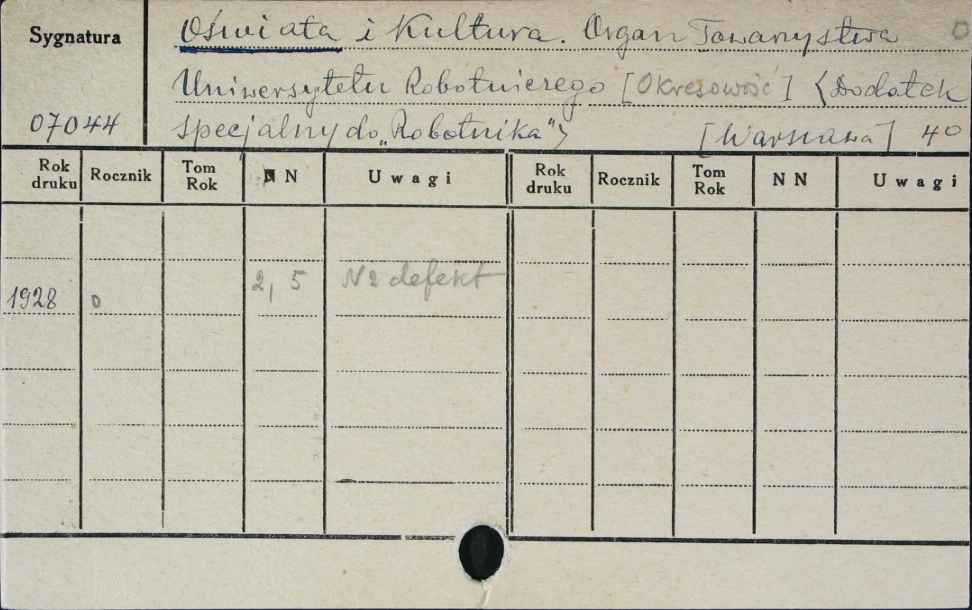 Sygnatura
Oświata i Kultura. Organ Towarzystwa 0
Uniwersytetu Robotniczego [Okresowość] <Dodatek
07044
specjalny do „Robotnika"> [Warszawa] 4º
Rok druku Rocznik Tom Rok N N Uwagi Rok druku Rocznik Tom Rok N N Uwagi
2, 5 N2 defekt
1928 0